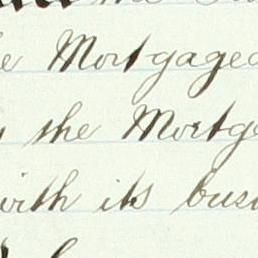 the
e Mortgaged
the Mortg
with its busi